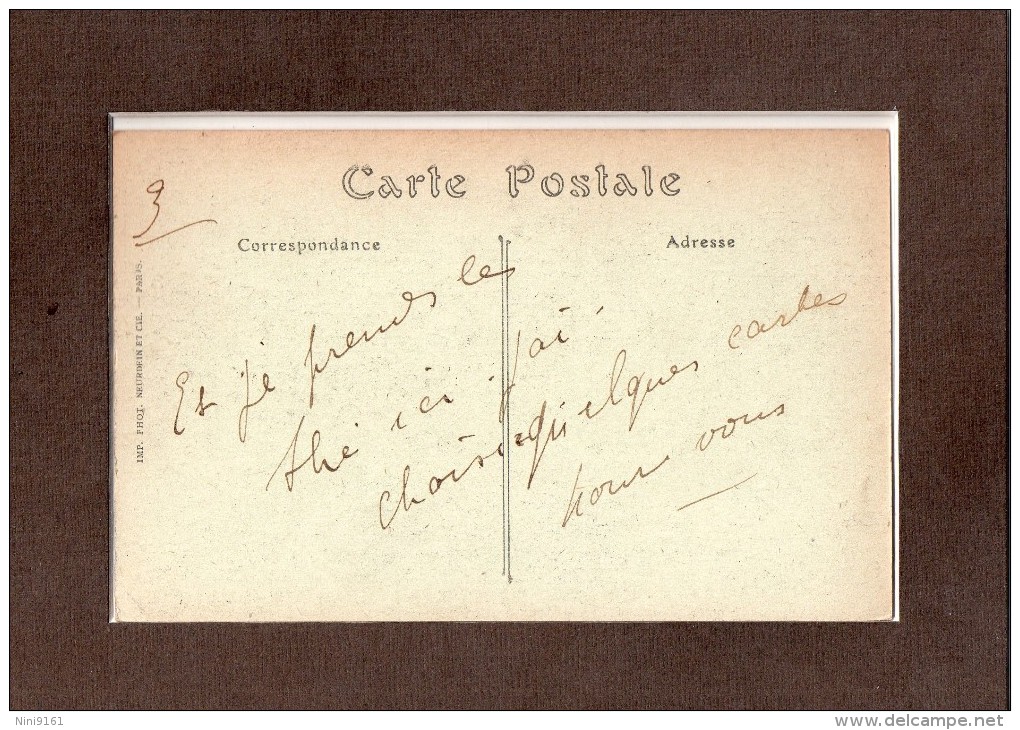 Carte Postale
3
Correspondance
Adresse
IMP. PHOT. NEURDEIN ET CIE. — PARIS.
Et je prends le
thé ici. j'ai
choisi quelques cartes
pour vous
Nini9161
www.delcampe.net